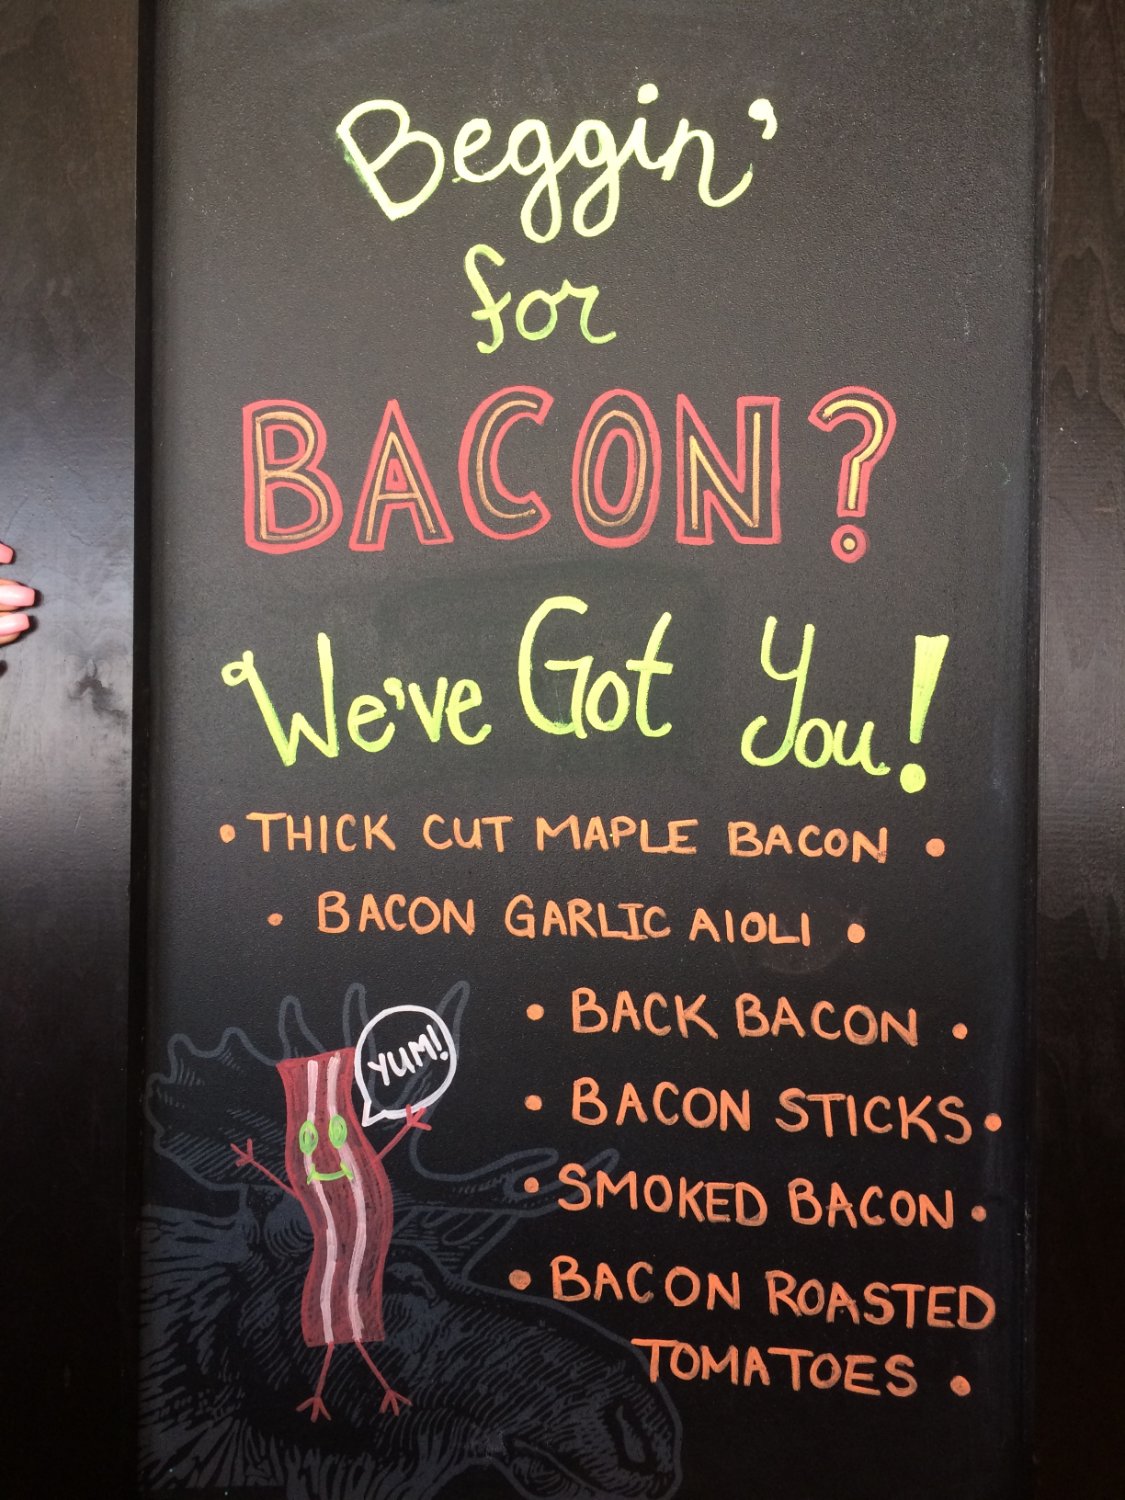 Beggin'
for
BACON?
We've Got You!
• THICK CUT MAPLE BACON •
• BACON GARLIC AIOLI •
• BACK BACON •
YUM!
• BACON STICKS •
• SMOKED BACON •
• BACON ROASTED
TOMATOES •